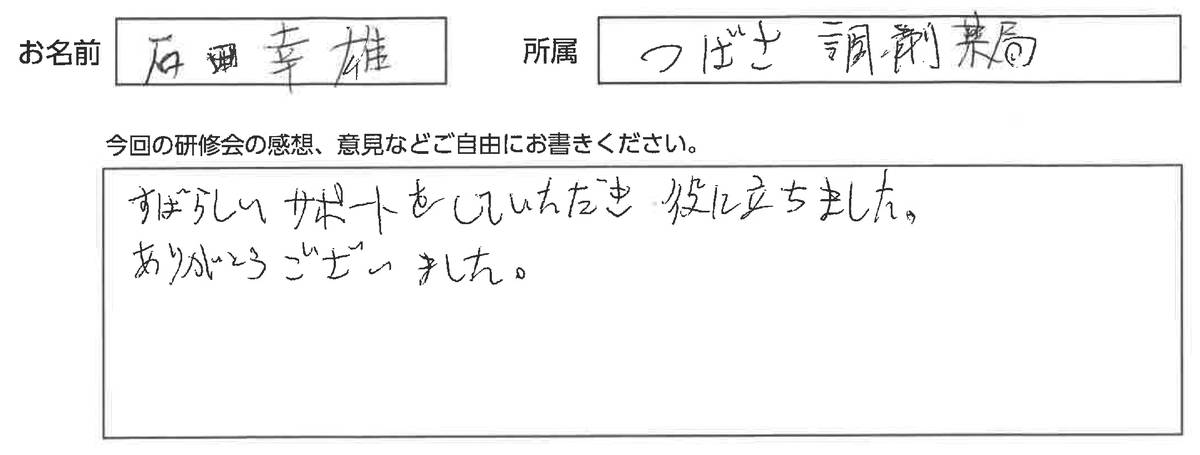 お名前 石田幸雄 所属 つばさ調剤薬局
今回の研修会の感想、意見などご自由にお書きください。
すばらしいサポートをしていただき役に立ちました。
ありがとうございました。